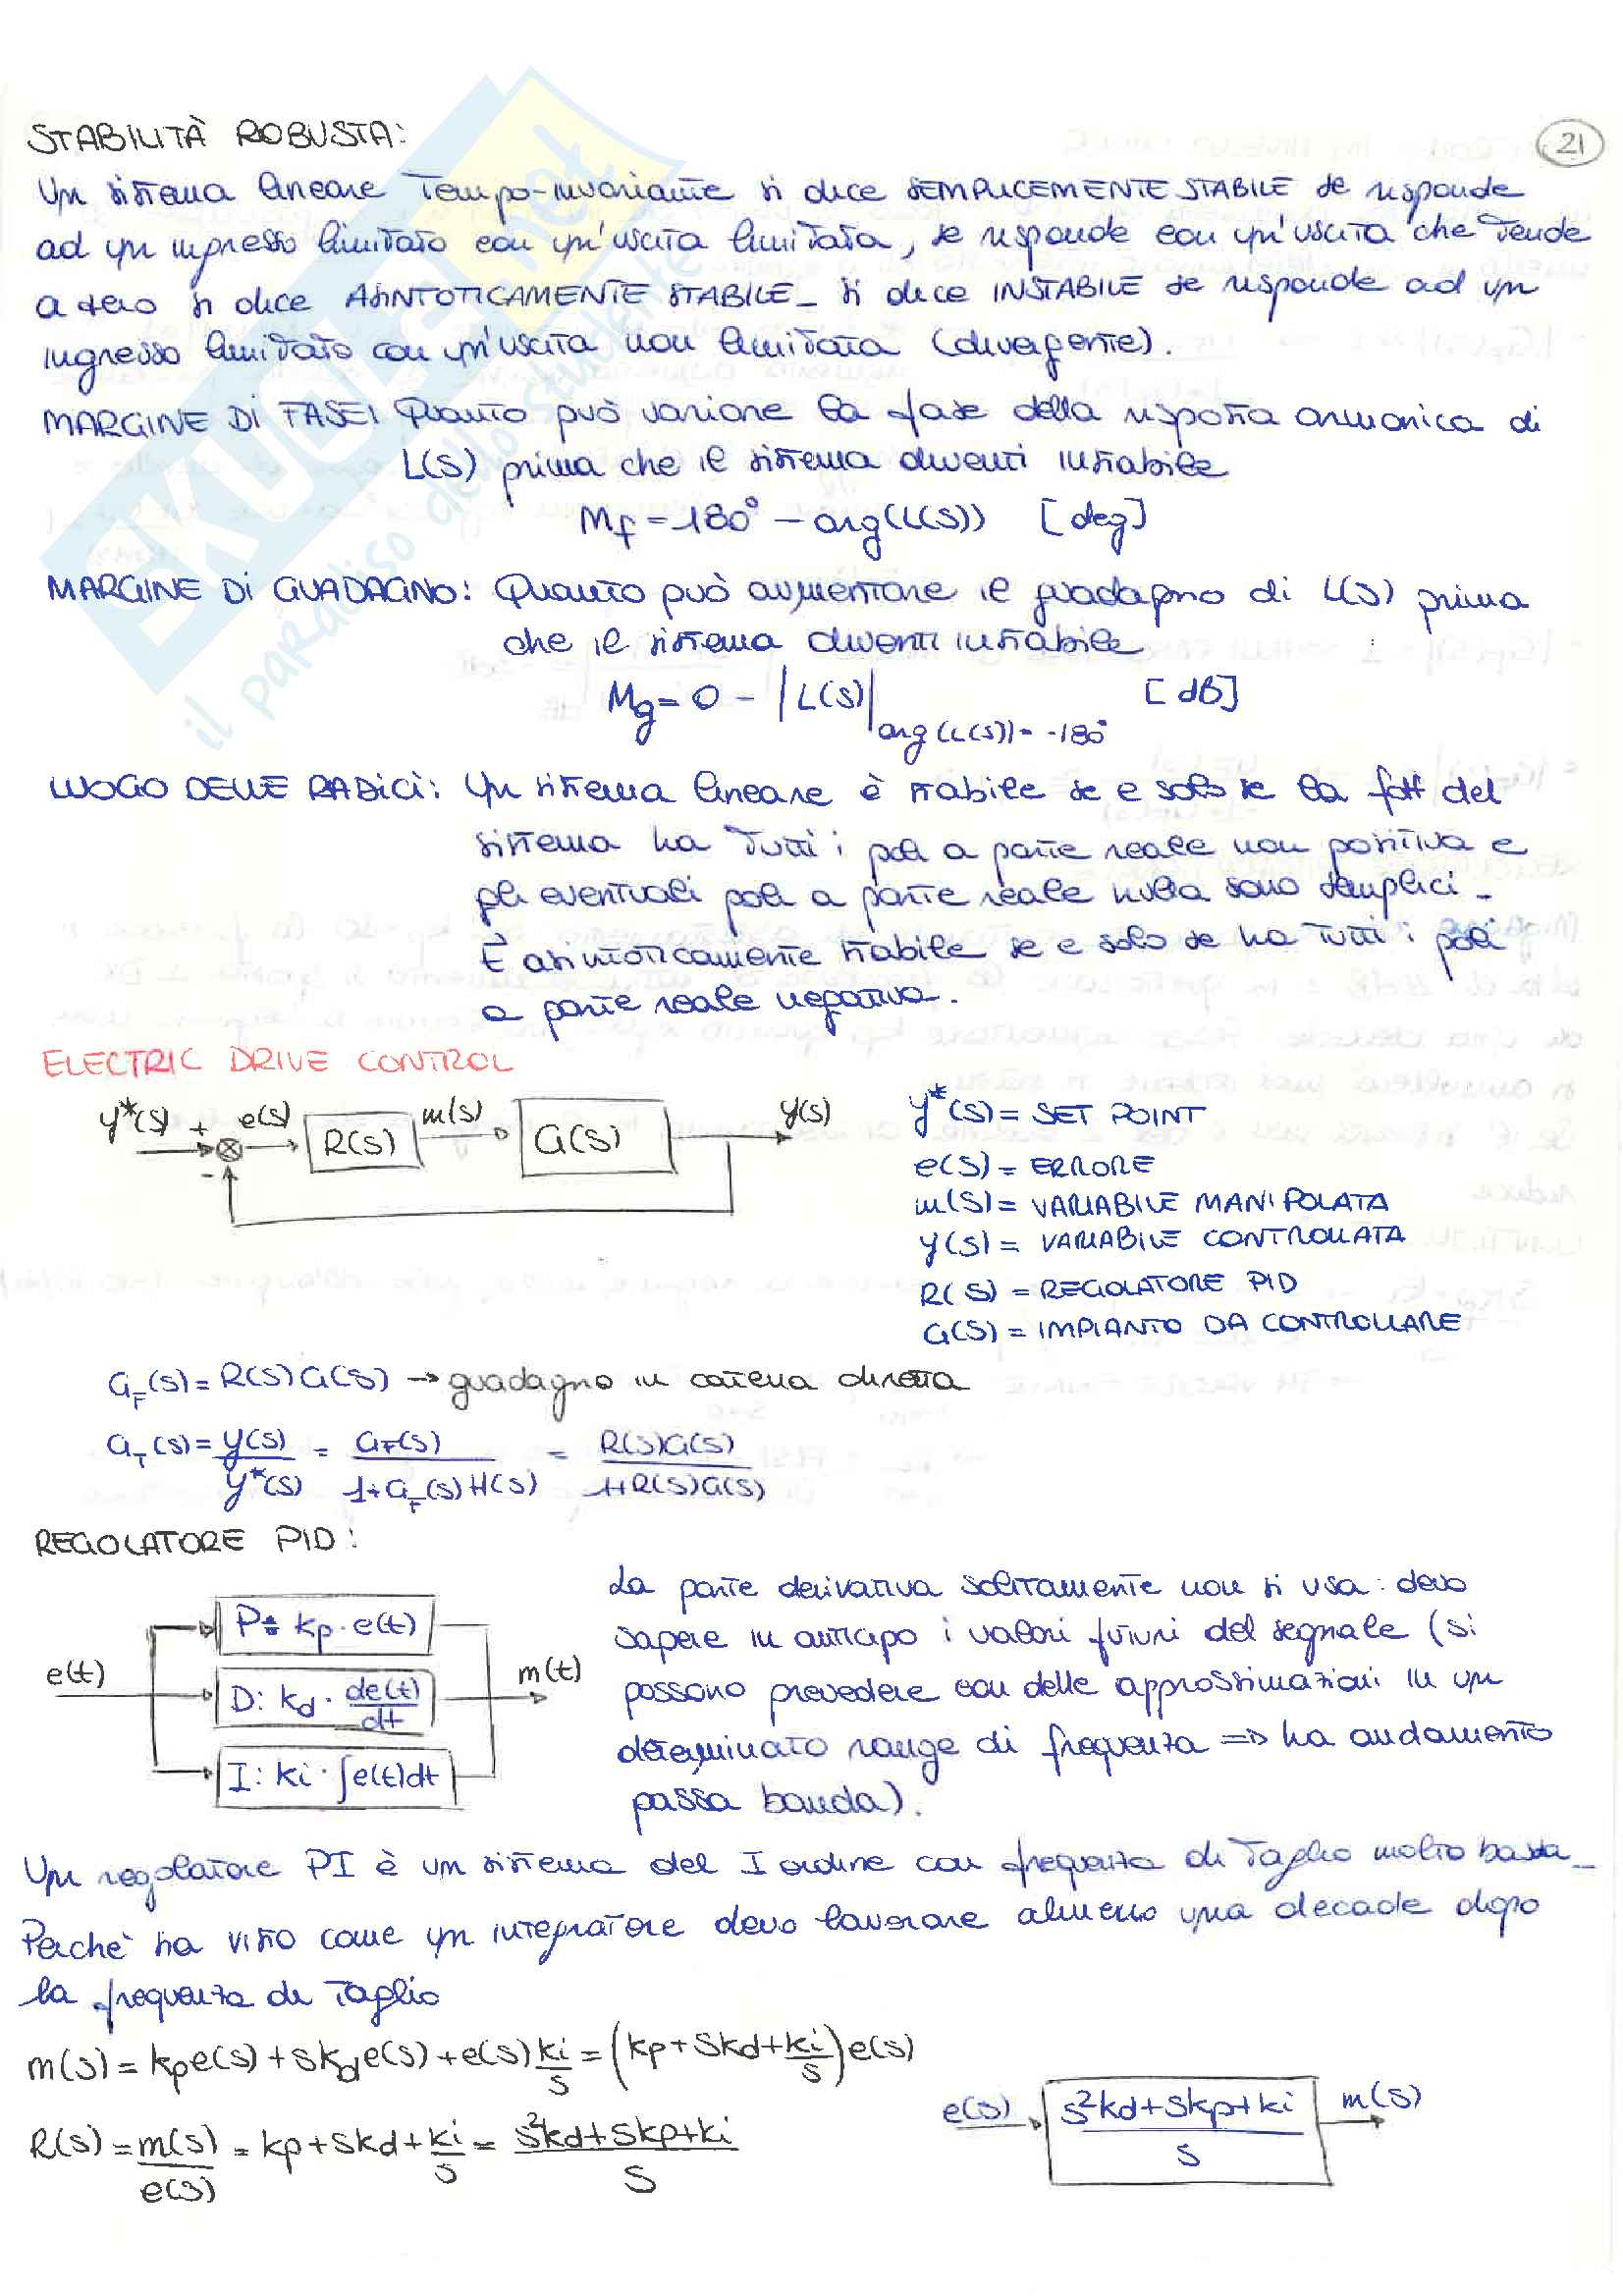 21
STABILITÀ ROBUSTA:
Un sistema lineare tempo-invariante si dice SEMPLICEMENTE STABILE se risponde
ad un ingresso limitato con un'uscita limitata, se risponde con un'uscita che tende
a zero si dice ASINTOTICAMENTE STABILE_ si dice INSTABILE se risponde ad un
ingresso limitato con un'uscita non limitata (divergente).
MARGINE DI FASE: Quanto può variare la fase della risposta armonica di
L(s) prima che il sistema diventi instabile
Mf = 180° - arg(L(s)) [deg]
MARGINE DI GUADAGNO: Quanto può aumentare il guadagno di L(s) prima
che il sistema diventi instabile
Mg = 0 - |L(s)|arg(L(s)) = -180° [dB]
LUOGO DELLE RADICI: Un sistema lineare è stabile se e solo se la fdt del
sistema ha tutti i poli a parte reale non positiva e
gli eventuali poli a parte reale nulla sono semplici_
È asintoticamente stabile se e solo se ha tutti i poli
a parte reale negativa.
ELECTRIC DRIVE CONTROL
y*(s) + e(s) R(s) m(s) G(s) y(s)
-
y*(s) = SET POINT
e(s) = ERRORE
m(s) = VARIABILE MANIPOLATA
y(s) = VARIABILE CONTROLLATA
R(s) = REGOLATORE PID
G(s) = IMPIANTO DA CONTROLLARE
GF(s) = R(s)G(s) → guadagno in catena diretta
GT(s) = y(s)/y*(s) = GF(s)/1+GF(s)H(s) = R(s)G(s)/1+R(s)G(s)
REGOLATORE PID:
e(t)
P: kp·e(t)
D: kd·de(t)/dt
I: ki·∫e(t)dt
m(t)
La parte derivativa solitamente non si usa: devo
sapere in anticipo i valori futuri del segnale (si
possono prevedere con delle approssimazioni in un
determinato range di frequenza ⇒ ha andamento
passa banda).
Un regolatore PI è un sistema del I ordine con frequenza di taglio molto bassa_
Perchè sia visto come un integratore devo lavorare almeno una decade dopo
la frequenza di taglio
m(s) = kpe(s) + skde(s) + e(s)ki/s = (kp + skd + ki/s)e(s)
R(s) = m(s)/e(s) = kp + skd + ki/s = s²kd + skp + ki/s
e(s) s²kd + skp + ki/s m(s)
SKUOLA.net
il paradiso dello studente